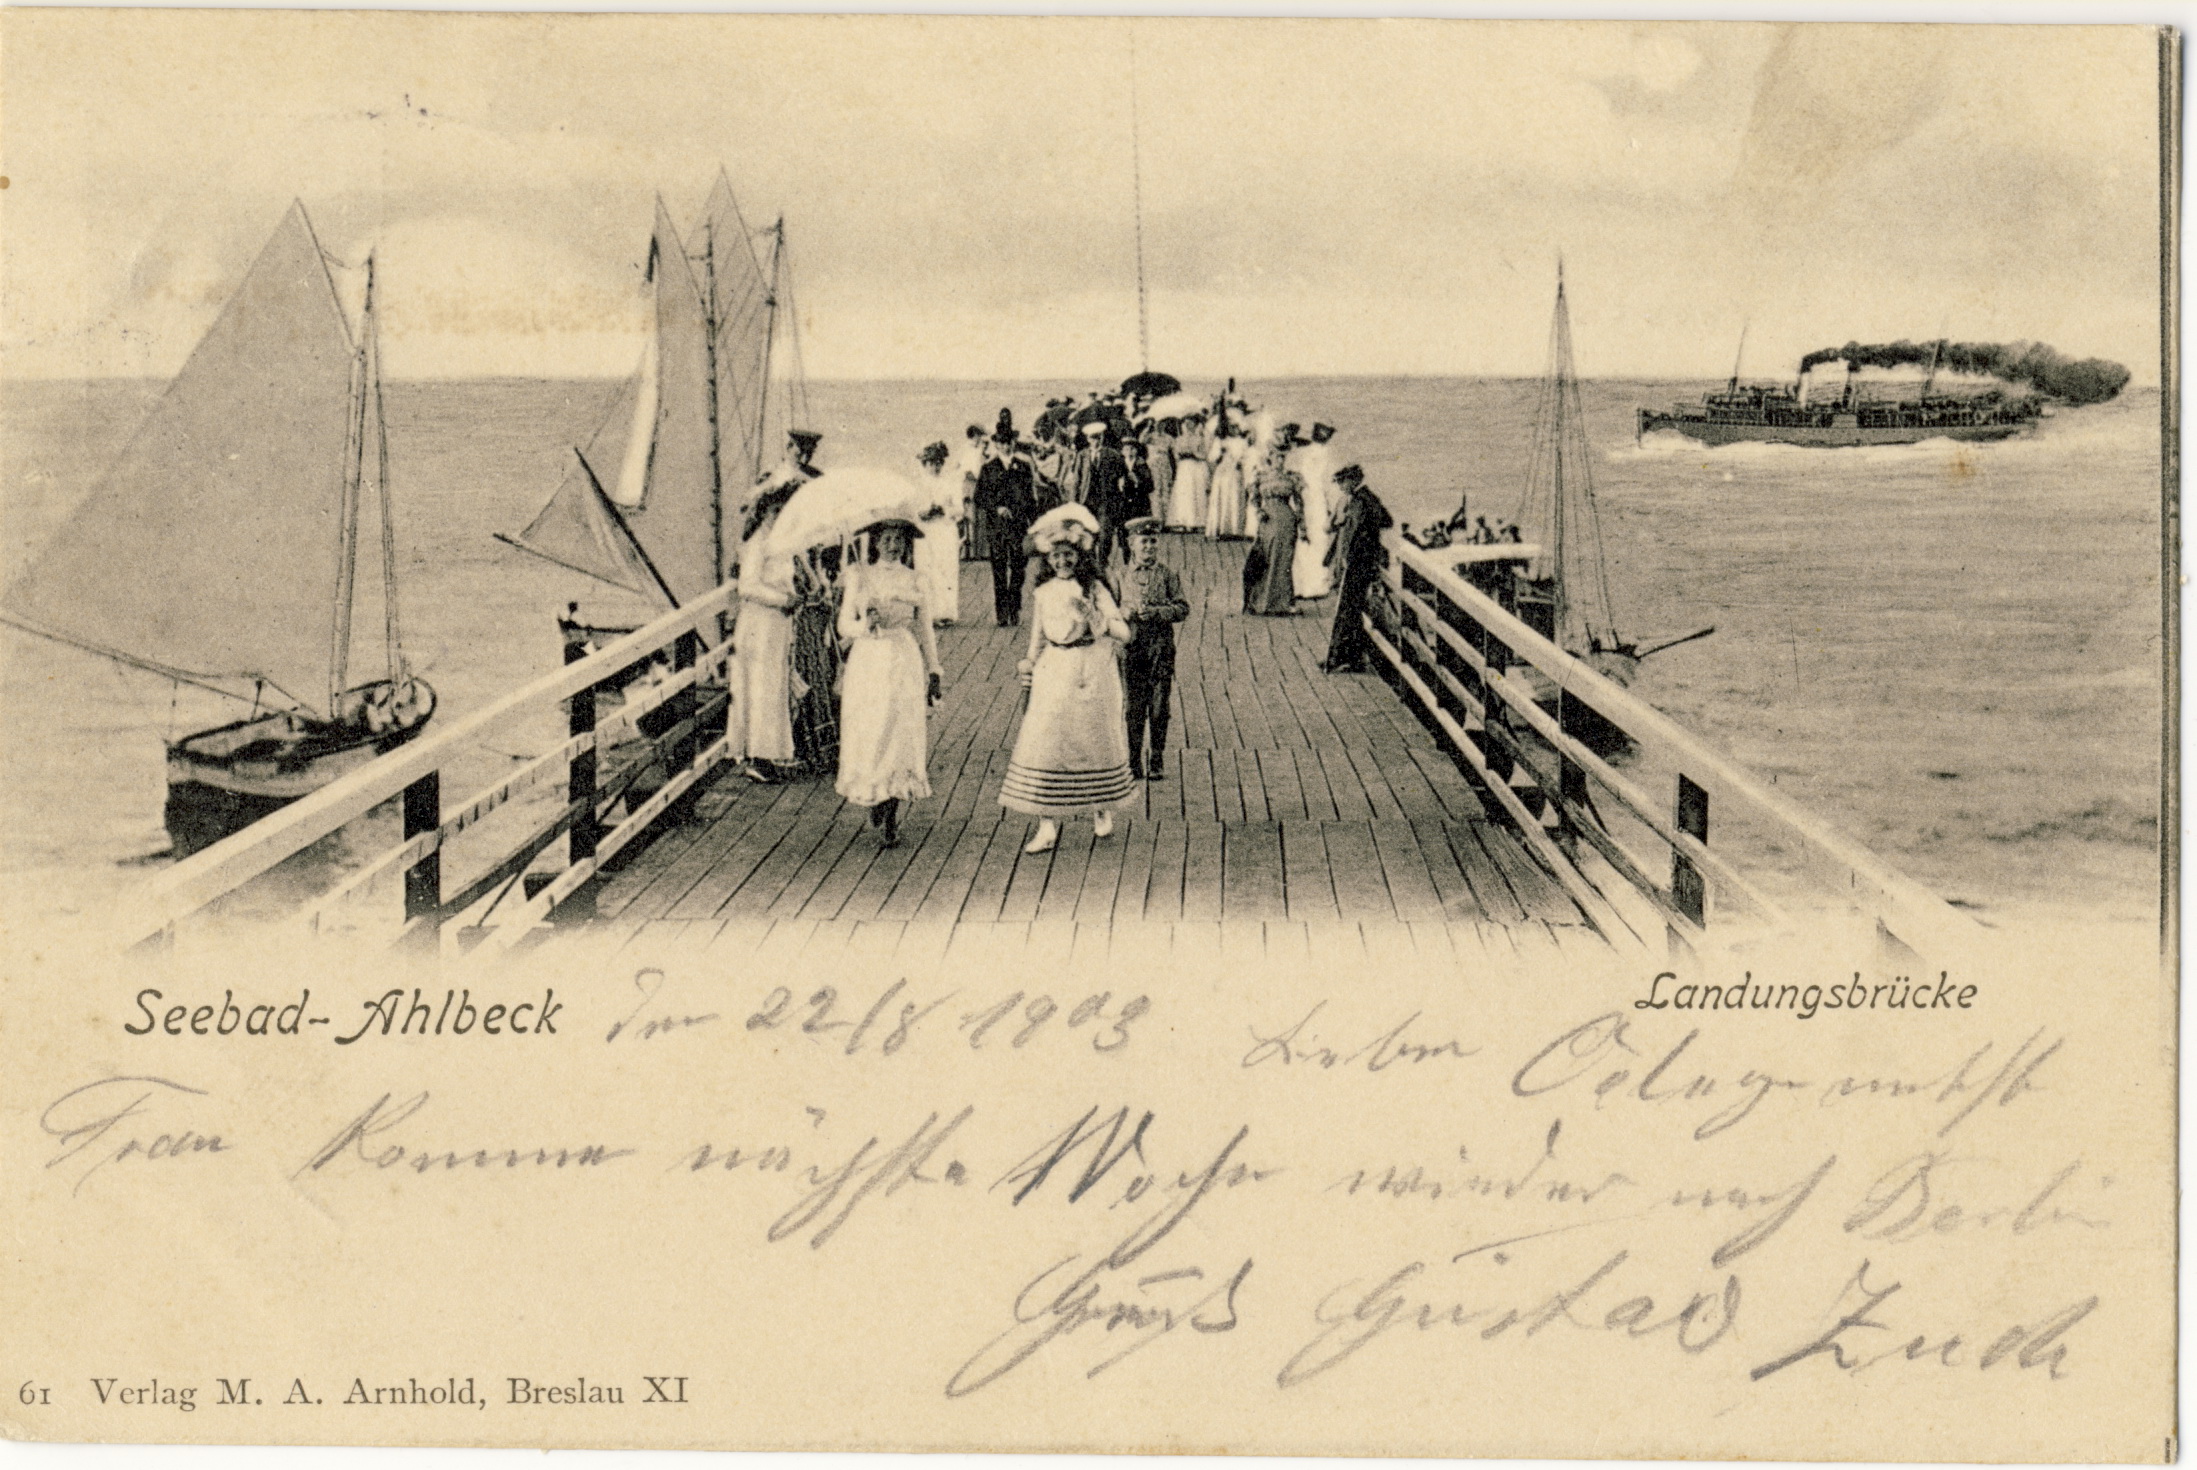 Seebad-Ahlbeck den 22/8 1903. Landungsbrücke
Lieber nebst
Frau Komme nächste Woche wieder nach Berlin
Gruß Gustav
61 Verlag M. A. Arnhold, Breslau XI